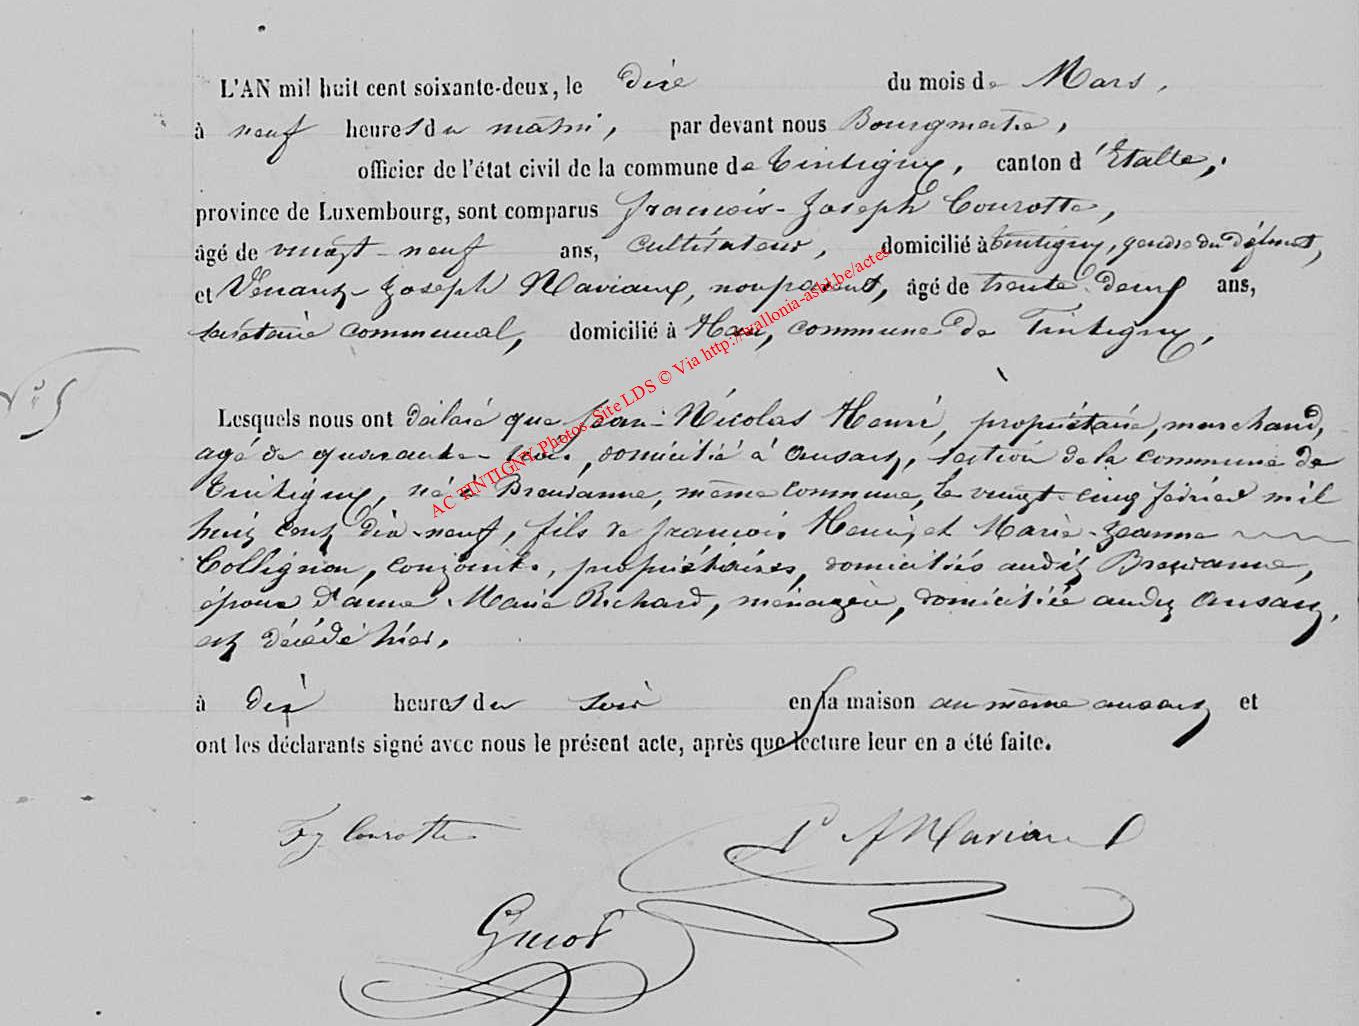 L'AN mil huit cent soixante-deux, le dix du mois de Mars,
à neuf heures du matin, par devant nous Bourgmestre,
officier de l'état civil de la commune de Tintigny, canton d'Etalle,
province de Luxembourg, sont comparus françois-Joseph Courotte,
âgé de vingt-neuf ans, cultivateur, domicilié à Tintigny, gendre du défunt,
et Venant-Joseph Maviaux, non parent, âgé de trente-deux ans,
secrétaire communal, domicilié à Han, commune de Tintigny,
N° 5
Lesquels nous ont déclaré que Jean-Nicolas Henri, propriétaire, marchand,
agé de quarante-trois, domicilié à Ansart, section de la commune de
Tintigny, né à Breuvanne, même commune, le vingt-cinq février mil
huit cent dix-neuf, fils de françois Henri, et Marie-Jeanne
Collignon, conjoints, propriétaires, domiciliés audit Breuvanne,
époux d'anne-Marie Richard, ménagère, domiciliée audit Ansart,
est décédé hier,
à dix heures du soir en la maison au même ansart et
ont les déclarants signé avec nous le présent acte, après que lecture leur en a été faite.
AC TINTIGNY Photos Site LDS © Via http://wallonia-asbl.be/actes
Fs Courotte
Maviaux